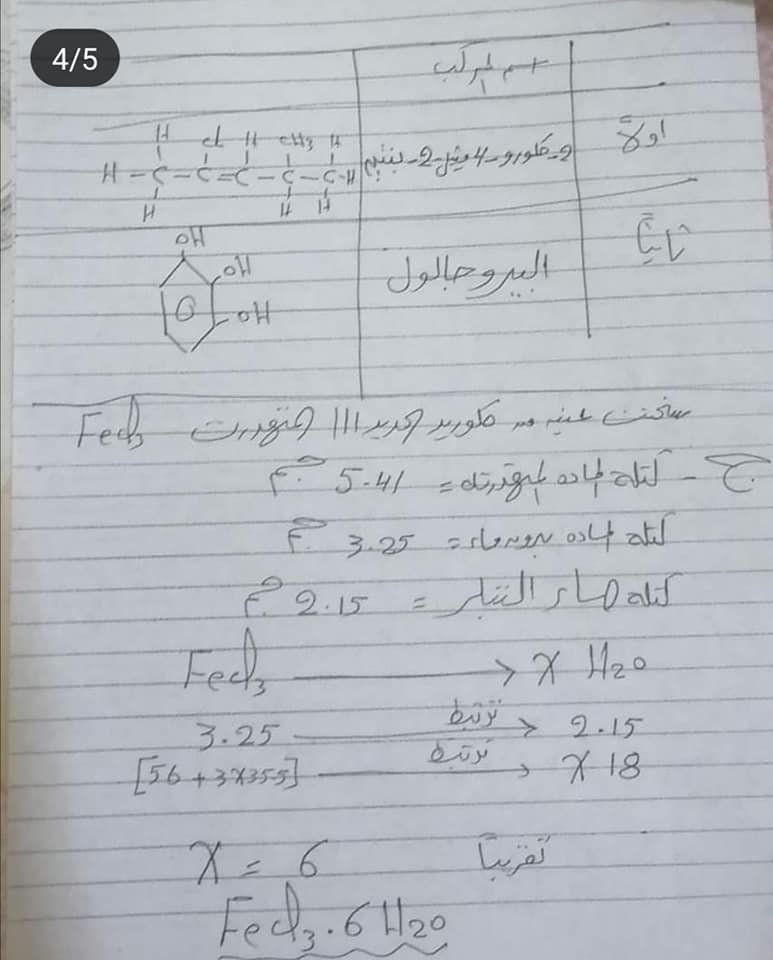 4/5
اسم المركب
اولاً
2-كلورو-4-ميثيل-2-بنتين
H Cl H CH3 H
H-C-C=C-C-C-H
H H H
ثانياً
البيروجالول
OH
OH
OH
سخنت عينه من كلوريد الحديد III المتهدرت FeCl3
ج - كتلة الماده المتهدرته = 5.41 جم
كتلة الماده بدون ماء = 3.25 جم
كتلة ماء التبلر = 2.15 جم
FeCl3 → X H2O
3.25 ترتبط → 2.15
[56+3×35.5] ترتبط → X 18
X = 6 تقريباً
FeCl3.6H2O